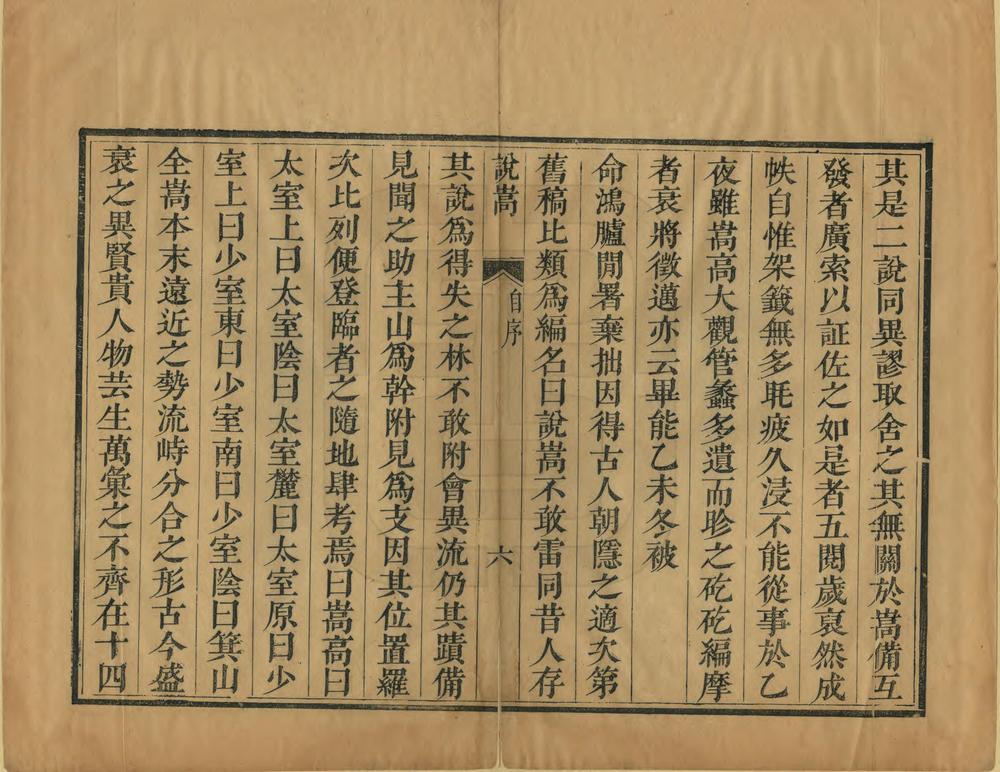 其是二說同異謬取舍之其無關於嵩備互
發者廣索以証佐之如是者五閱歲裒然成
帙自惟架籤無多眊疲久浸不能從事於乙
夜雖嵩高大觀管蠡多遺而昣之矻矻編摩
者衰將徵邁亦云畢能乙未冬被
命鴻臚閒署棄拙因得古人朝隱之適次第
舊稿比類爲編名曰說嵩不敢雷同昔人存
說嵩
自序
六
其說爲得失之林不敢附會異流仍其蹟備
見聞之助主山爲幹附見爲支因其位置羅
次比列便登臨者之隨地肆考焉曰嵩高曰
太室上曰太室陰曰太室麓曰太室原曰少
室上曰少室東曰少室南曰少室陰曰箕山
全嵩本末遠近之勢流峙分合之形古今盛
衰之異賢貴人物芸生萬彙之不齊在十四